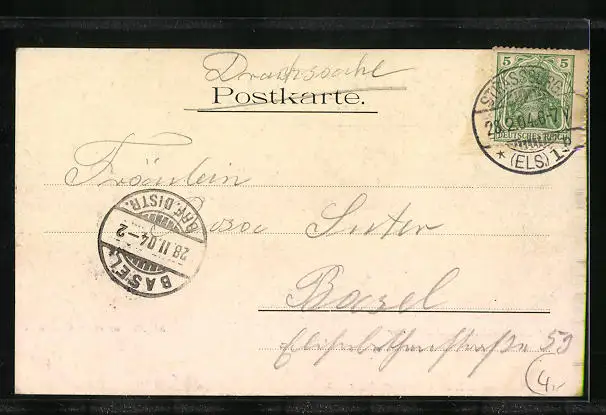 Drucksache
Postkarte.
5 5
DEUTSCHES REICH
STRASSBURG
28.2.04.6-7
* (ELS) 1
Fräulein
Rosa Suter
BRF. DISTR.
28.II.04-2
BASEL
Basel
Elisabethenstraße 59
4.-